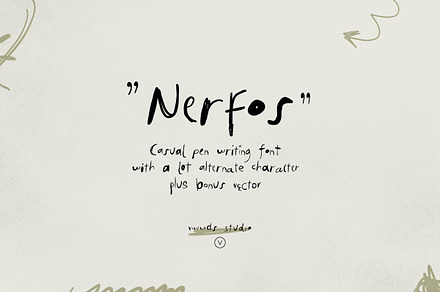 "Nerfos"
Casual pen writing font
with a lot alternate character
plus bonus vector
studio
V